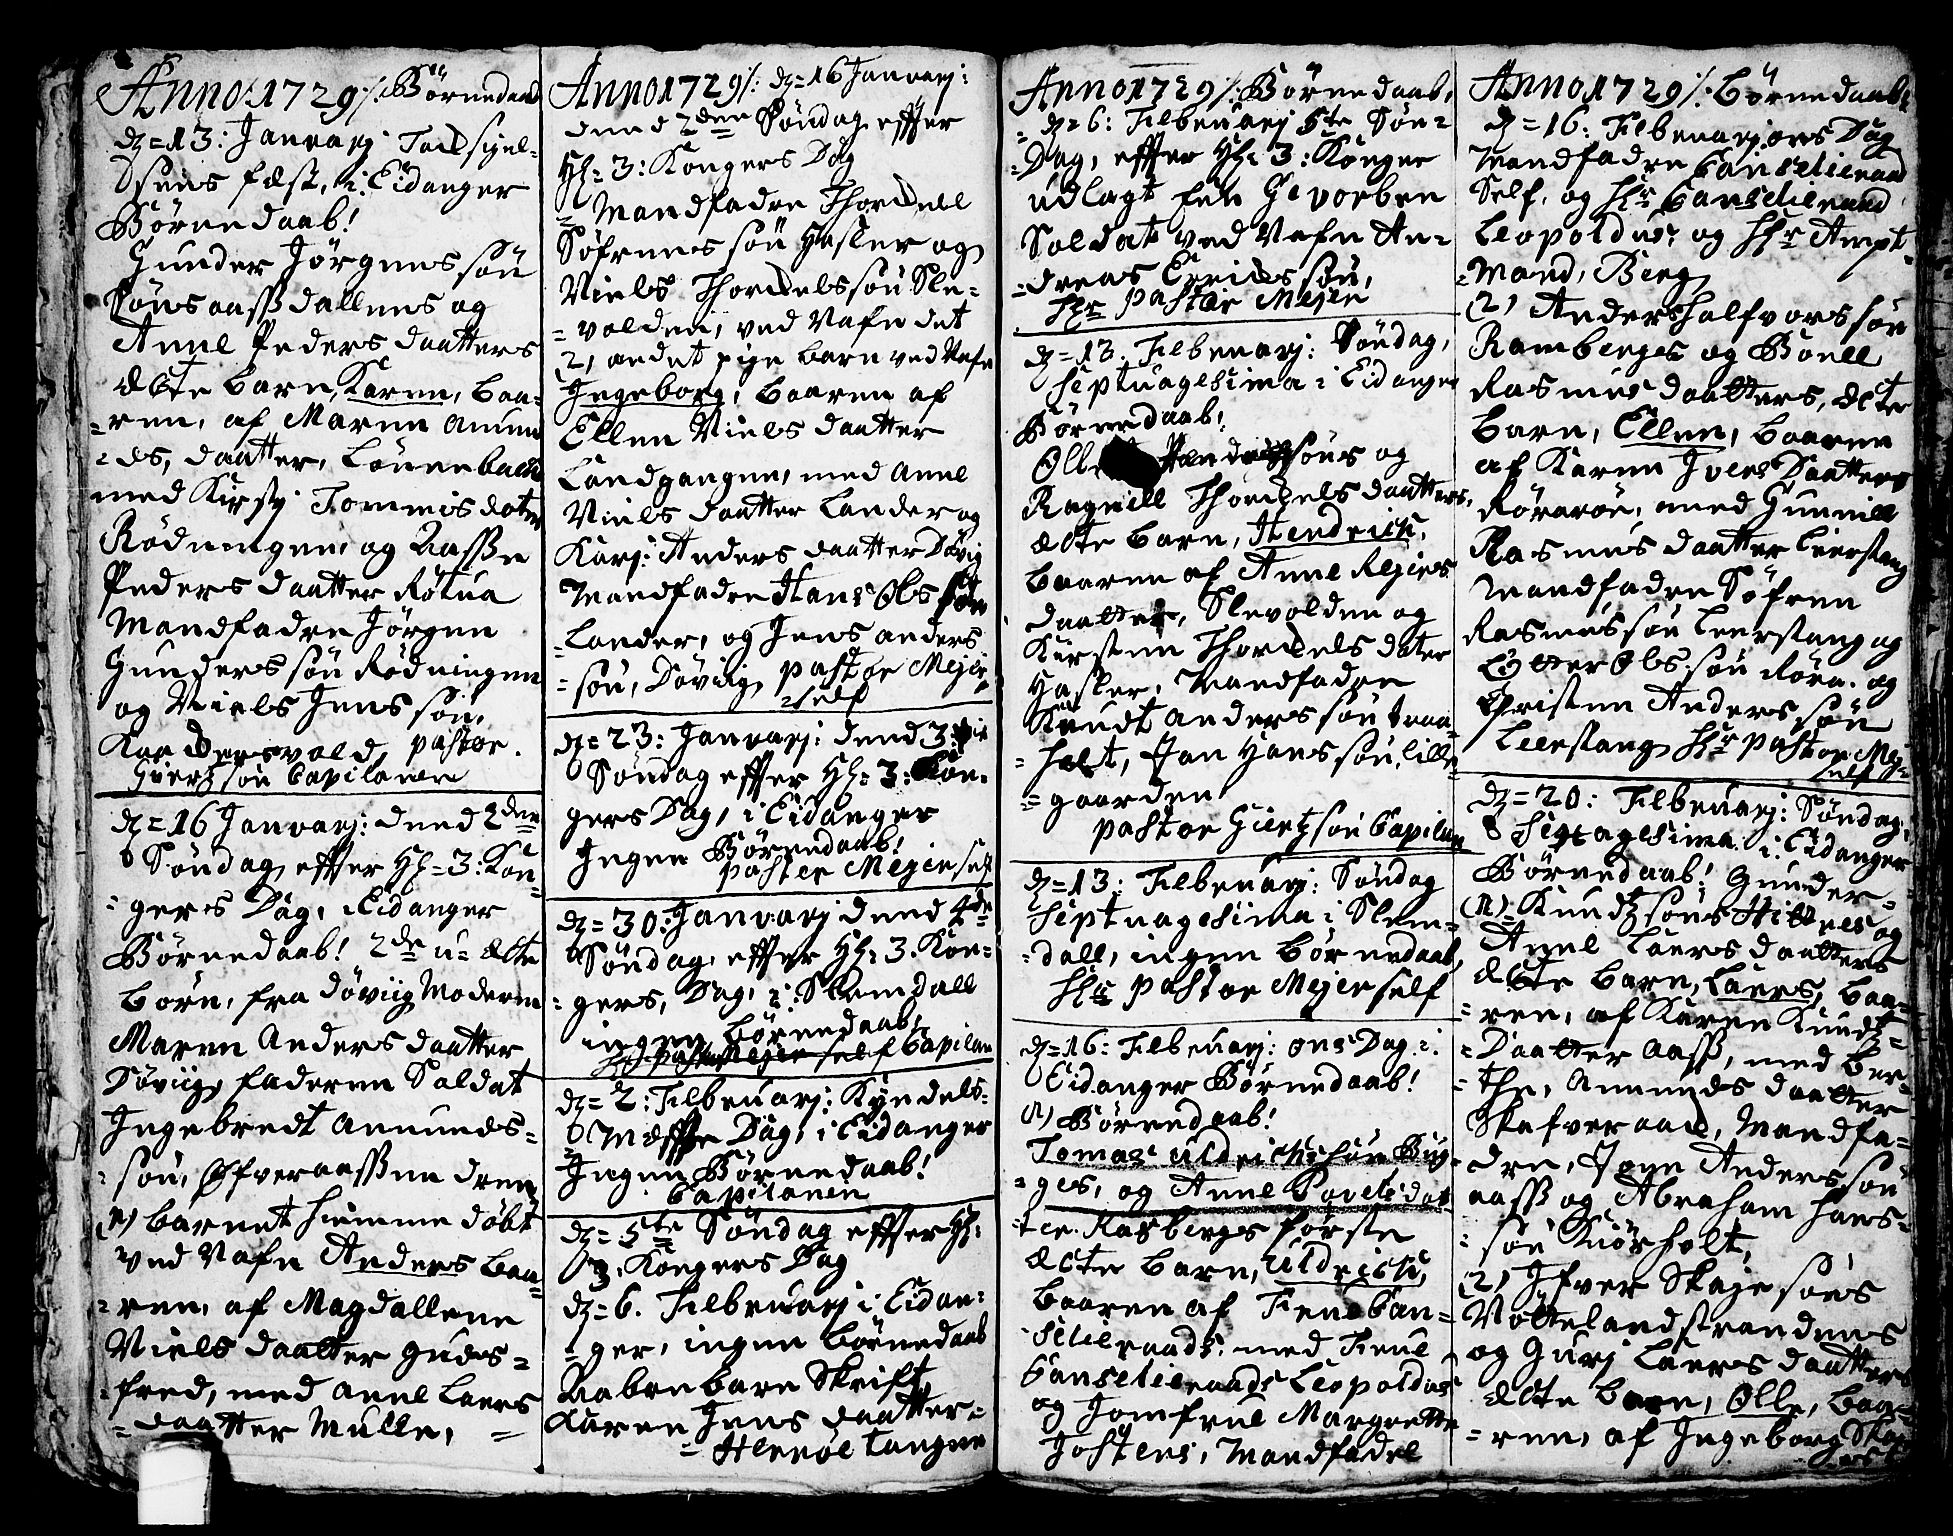 Anno 1729 ⁒ Börnedaab
dz = 13: Januarj Tadsiyel-
sens fæst, i Eidanger
Börnedaab!
Gunder Jörgens sön
Sönsaassdallens og
Anne Peders daatters
Ecte barn, Karen, baa-
= ren, af Maren Amun
= ds, daatter, Lönnebach
med Kirstj Tommisdater
Rödningen, og Aasse
Peders daatter Rötua
Mandfadre Jörgen
Gunders sön Rödningen
og Niels Jens sön,
pastor.
Giertz sön Capilanen
dz = 16 Januarj: dend 2den
Söndag effter Hl = 3: Kon-
= gers Dag, i Eidanger
Börnedaab! 2de u = Ecte
börn, fra Döviig Moderen
Maren Anders daatter
Döviig, faderen Soldat
Ingebredt Amunds =
= sön, Öfveraassen dreng
(1) barnet hiemme döbt
ved Nafn Anders baa =
= ren, af Magdallene
Niels daatter Guds =
= fred, med Anne Laers
= daatter Mulle, =
Anno 1729 ⁒ dz = 16 Januarj:
dend 2den Söndag effter
Hl = 3: Kongers Dag
= Mandfadre Thordell
Söfrens sön Hasler og
Niels Thordels sön Sle =
= volden, ved Nafn det
(2) andet pige barn ved Nafn
Ingeborg, baaren af
Ellen Niels daatter
Landgangen, med Anne
Niels daatter Lander og
Karj: Anders daatter Dövig
Mandfadre Hans Ols sön
= Lander, og Jens Anders
= sön, Dövig, pastor Mejer
self
dz = 23: Januarj: dend 3die
Söndag effter Hl = 3: Kon-
gers Dag, i Eidanger
Ingen Börnedaab!
pastor Mejer self
dz = 30: Januarj dend 4de
Söndag, effter Hl = 3. Kon =
= gers, Dag, i: Slemdall
ingen börnedaab,
Hr pastor Mejer self Capilan
dz = 2: Febeuarj: Kyndels =
= Mæsse Dag, i Eidanger
Ingen Börnedaab!
Capilanen
dz = 5te Söndag effter Hl:
3. Kongers Dag
dz = 6. Febeuarj i Eidan =
= ger, ingen börnedaab
Aabenbare Skrift
Karen Jens daatter =
= Herröe tangen
Anno 1729 ⁒ Börnedaab,
= dz = 6: Febeuarj 5te Sön =
= Dag, effter Hl = 3: Konger
udlagt een Gevorben
Soldat ved Nafn An =
= dreas Erichs sön,
Hr pastor Mejer
dz = 13. Febeuarj: Söndag,
Septuagesima i Eidanger
Börnedaab!
söns og
Ragnill Thordels daatters,
Ecte barn, Hendrich,
baaren af Anne Rejers
daatter, Slevolden og
Kirsten Thordels dater
Hasler, Mandfadre
Knudt Anders sön traa-
= holt, Jan Hans sön, lille
= gaarden
pastor Giertz sön Capilan
dz = 13: Febeuarj: Söndag
Septuagesima i Slem =
= dall, ingen börnedaab,
Hr pastor Mejer self
dz = 16: Febeuarj: ons Dag i.
Eidanger Börnedaab!
(1) Börnedaab!
Tomas Uldrichs sön Byg
= ges, og Anne Povels dat
= ter Rasbergs förste
Ecte barn, Uldrich,
baaren af Frue Can =
= selieraads, med Frue
Canselieraads Leopoldus
og Jomfrue Margrette
Jostens, Mandfadre
Anno 1729 ⁒ Börnedaab,
dz = 16: Febeuarj ons Dag
Mandfadre Canselieraad
Self, og Hr Canselieraad
Leopoldus, og Hr Ampt
= mand, Berg
(2) Anders halfvors sön
Ramberges og Boell
Rasmus daatters, Ecte
barn, Ellen, baaren
af Karen Ivers daatters
Röraröe, med Gunnill
Rasmus daatter Leerstang
Mandfadre Söfren
Rasmus sön Leerstang og
Ols sön Röra. og
Christen Anders sön
Leerstang Hr pastor Mej-
self
dz = 20: Febeuarj: Söndag
Segxagesima i: Eidanger
Börnedaab! Gunder =
(1) = Knudz söns Hitteres og
Anne Laers daatters
Ecte barn, Laers, baa =
= ren, af Karen Knudz =
= Daatter Aass, med Ber =
= the, Amunds daatter
Skafveraad, Mandfa =
dre, Anders sön
Aass og Abraham hans =
= sön Kiörholt,
(2) Ifver Skaje söns
Nöttelandstrandens
og Gurj Laers daatters
Ecte barn, Olle, baa =
= ren, af Ingeborg